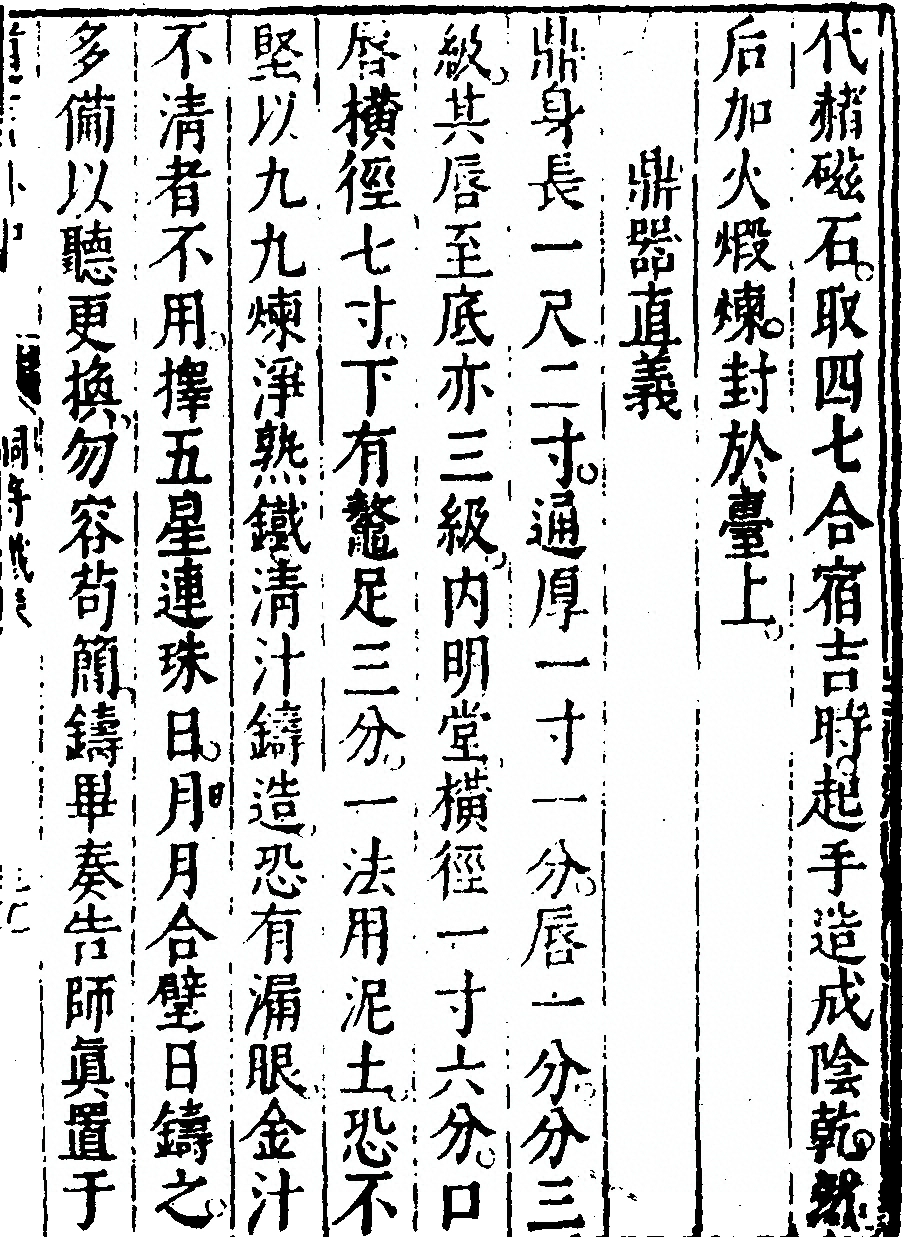 代赭磁石取四七合宿吉時起手造成陰乾然
后加火煅煉封於臺上
鼎器直義
鼎身長一尺二寸通厚一寸一分唇一分分三
級其唇至底亦三級内明堂橫徑一寸六分口
唇橫徑七寸下有鼇足三分一法用泥土恐不
堅以九九煉淨熟鐵清汁鑄造恐有漏眼金汁
不清者不用擇五星連珠日月日月合璧日鑄之
多備以聽更換勿容苟簡鑄畢奏告師眞置于